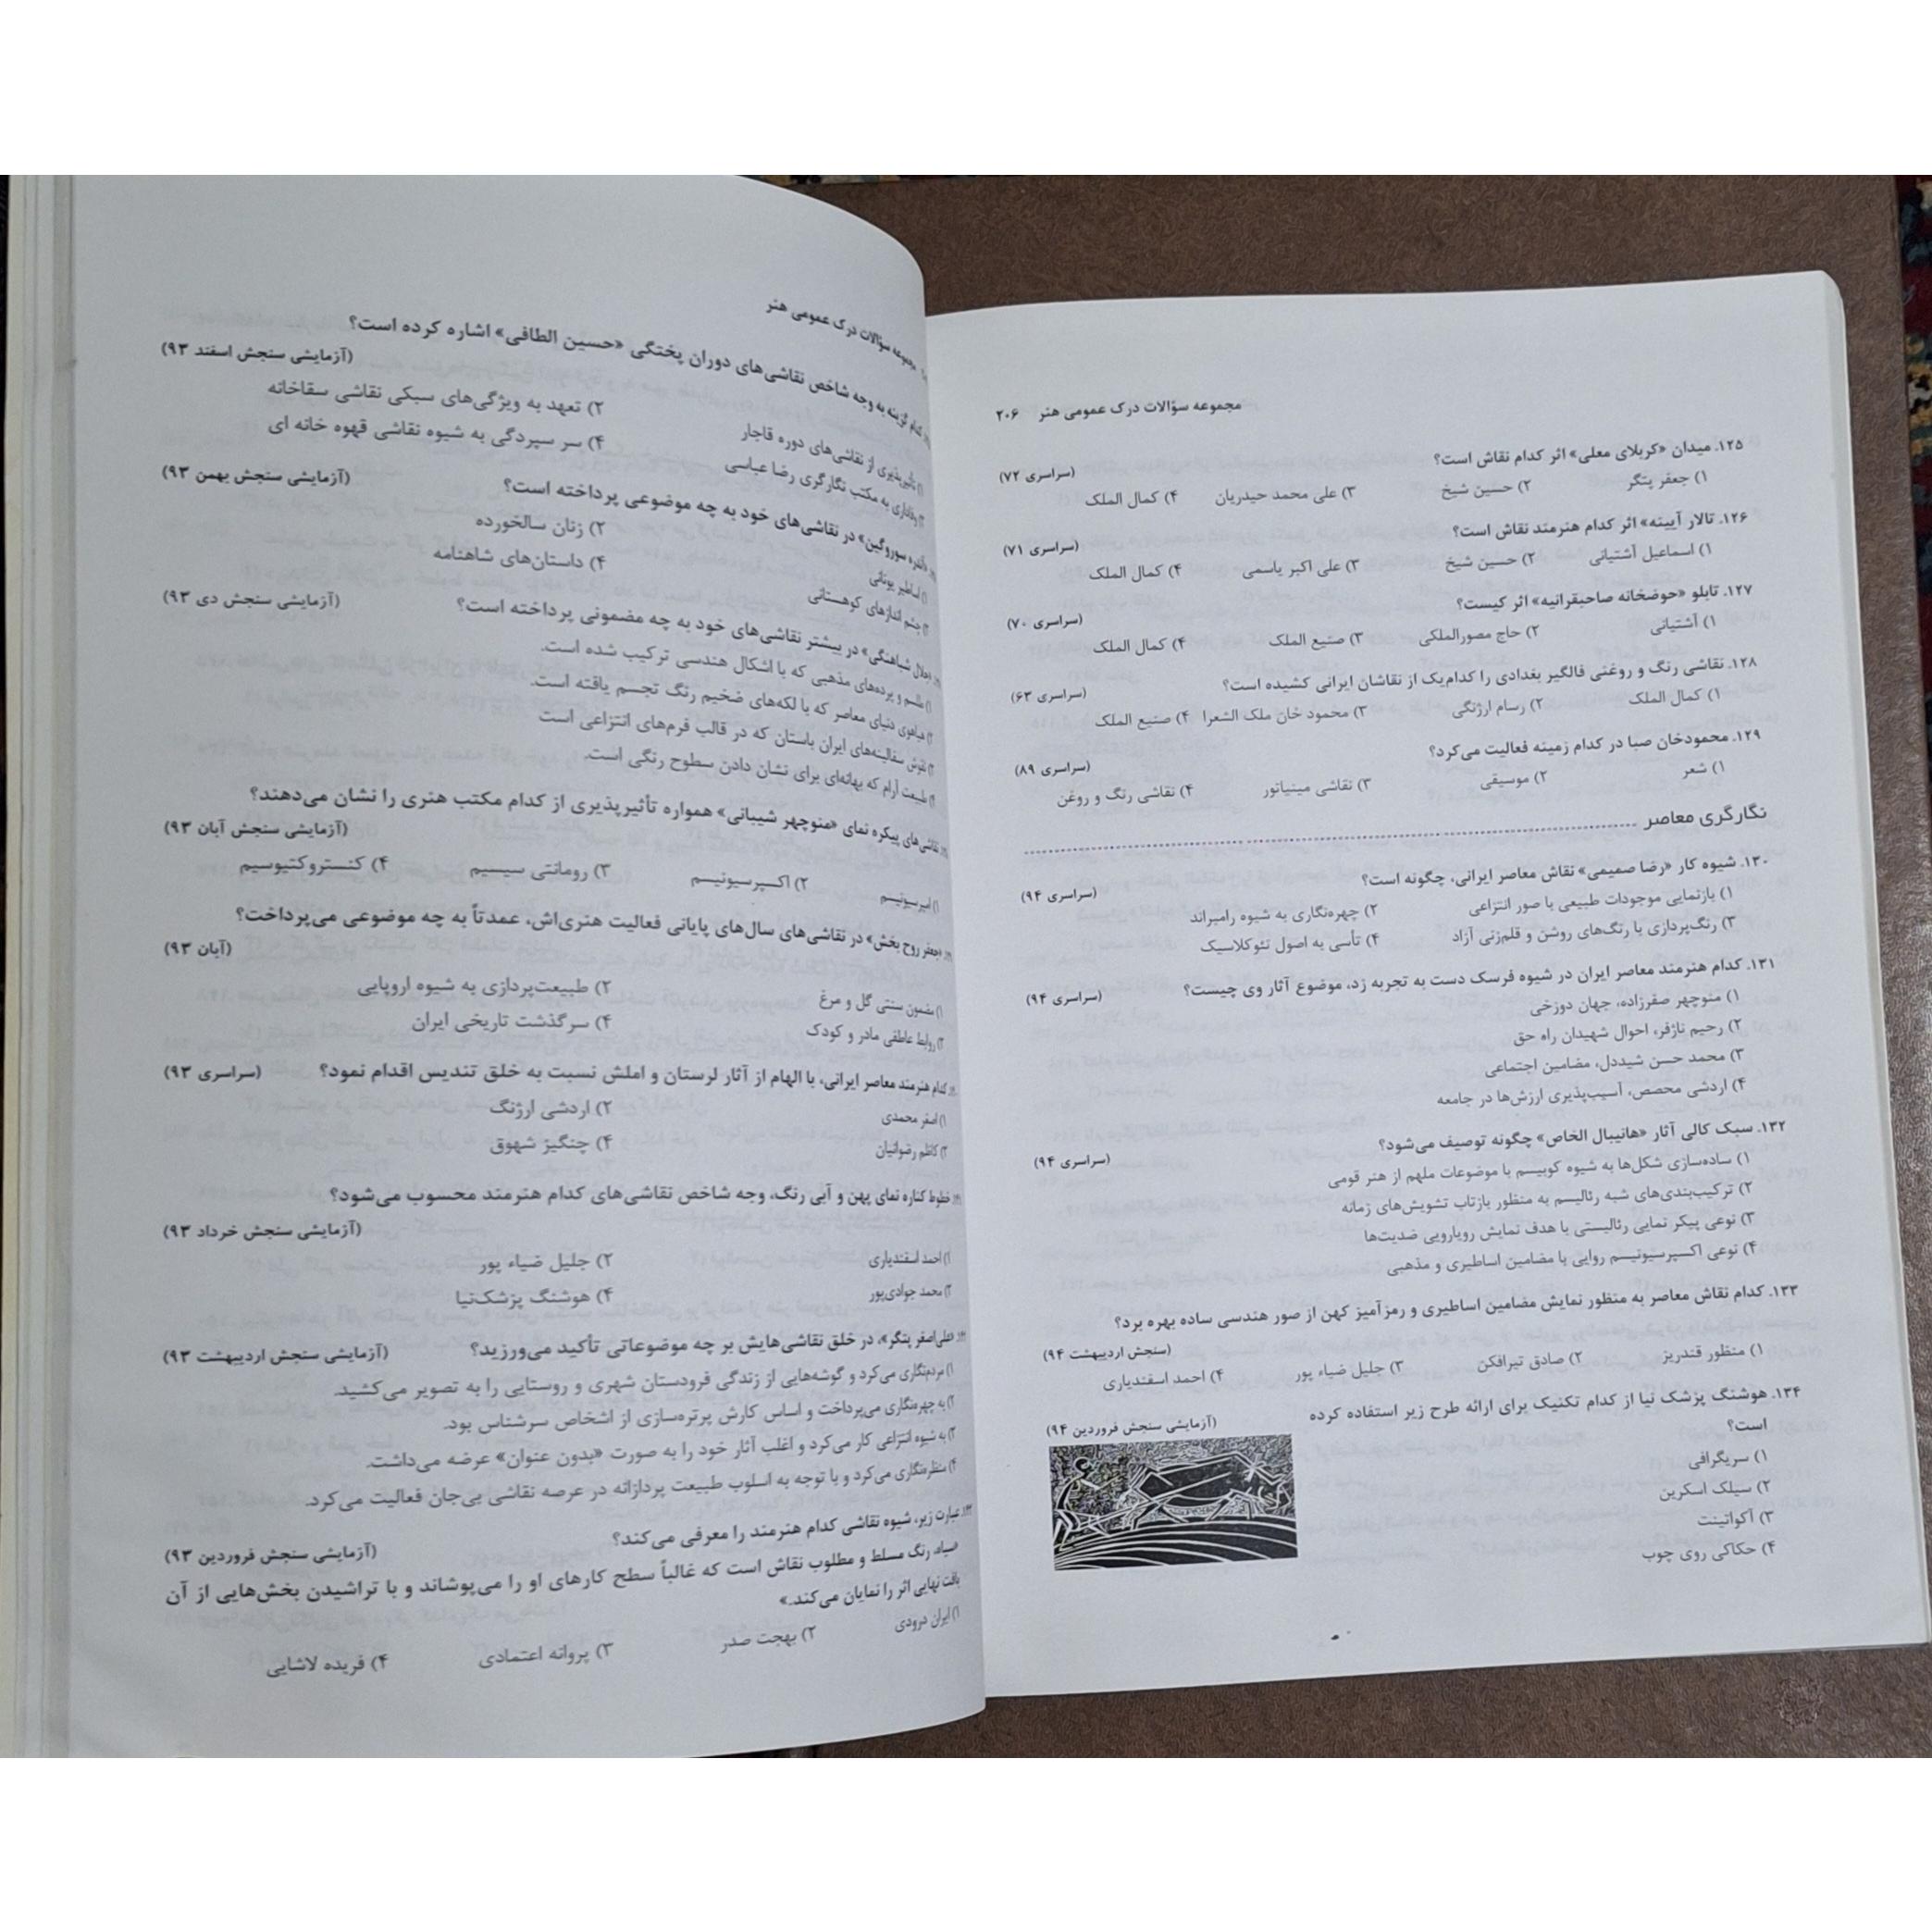 مجموعه سؤالات درک عمومی هنر ۲۰۶
۱۲۵. میدان «کربلای معلی» اثر کدام نقاش است؟ (سراسری ۷۲)
۱) جعفر پتگر ۲) حسین شیخ ۳) علی محمد حیدریان ۴) کمال الملک
۱۲۶. تالار آیینه» اثر کدام هنرمند نقاش است؟ (سراسری ۷۱)
۱) اسماعیل آشتیانی ۲) حسین شیخ ۳) علی اکبر یاسمی ۴) کمال الملک
۱۲۷. تابلو «حوضخانه صاحبقرانیه» اثر کیست؟ (سراسری ۷۰)
۱) آشتیانی ۲) حاج مصورالملکی ۳) صنیع الملک ۴) کمال الملک
۱۲۸. نقاشی رنگ و روغنی فالگیر بغدادی را کدام‌یک از نقاشان ایرانی کشیده است؟ (سراسری ۶۳)
۱) کمال الملک ۲) رسام ارژنگی ۳) محمود خان ملک الشعرا ۴) صنیع الملک
۱۲۹. محمودخان صبا در کدام زمینه فعالیت می‌کرد؟ (سراسری ۸۹)
۱) شعر ۲) موسیقی ۳) نقاشی مینیاتور ۴) نقاشی رنگ و روغن
نگارگری معاصر
۱۳۰. شیوه کار «رضا صمیمی» نقاش معاصر ایرانی، چگونه است؟ (سراسری ۹۴)
۱) بازنمایی موجودات طبیعی با صور انتزاعی ۲) چهره‌نگاری به شیوه رامبراند
۳) رنگ‌پردازی با رنگ‌های روشن و قلم‌زنی آزاد ۴) تأسی به اصول نئوکلاسیک
۱۳۱. کدام هنرمند معاصر ایران در شیوه فرسک دست به تجربه زد، موضوع آثار وی چیست؟ (سراسری ۹۴)
۱) منوچهر صفرزاده، جهان دوزخی
۲) رحیم ناژفر، احوال شهیدان راه حق
۳) محمد حسن شیددل، مضامین اجتماعی
۴) اردشی محصص، آسیب‌پذیری ارزش‌ها در جامعه
۱۳۲. سبک کالی آثار «هانیبال الخاص» چگونه توصیف می‌شود؟ (سراسری ۹۴)
۱) ساده‌سازی شکل‌ها به شیوه کوبیسم با موضوعات ملهم از هنر قومی
۲) ترکیب‌بندی‌های شبه رئالیسم به منظور بازتاب تشویش‌های زمانه
۳) نوعی پیکر نمایی رئالیستی با هدف نمایش رویارویی ضدیت‌ها
۴) نوعی اکسپرسیونیسم روایی با مضامین اساطیری و مذهبی
۱۳۳. کدام نقاش معاصر به منظور نمایش مضامین اساطیری و رمزآمیز کهن از صور هندسی ساده بهره برد؟
(سنجش اردیبهشت ۹۴)
۱) منظور قندریز ۲) صادق تبرافکن ۳) جلیل ضیاء پور ۴) احمد اسفندیاری
۱۳۴. هوشنگ پزشک نیا از کدام تکنیک برای ارائه طرح زیر استفاده کرده
است؟ (آزمایشی سنجش فروردین ۹۴)
۱) سریگرافی
۲) سیلک اسکرین
۳) آکواتینت
۴) حکاکی روی چوب
مجموعه سؤالات درک عمومی هنر
کدام گزینه به وجه شاخص نقاشی‌های دوران پختگی «حسین الطافی» اشاره کرده است؟
(آزمایشی سنجش اسفند ۹۳)
۱) تأثیرپذیری از نقاشی‌های دوره قاجار ۲) تعهد به ویژگی‌های سبکی نقاشی سقاخانه
۳) وفاداری به مکتب نگارگری رضا عباسی ۴) سر سپردگی به شیوه نقاشی قهوه خانه ای
«آندره سوروگین» در نقاشی‌های خود به چه موضوعی پرداخته است؟ (آزمایشی سنجش بهمن ۹۳)
۱) اساطیر یونانی ۲) زنان سالخورده
۳) چشم اندازهای کوهستانی ۴) داستان‌های شاهنامه
«جلال شباهنگی» در بیشتر نقاشی‌های خود به چه مضمونی پرداخته است؟ (آزمایشی سنجش دی ۹۳)
۱) طلسم و پرده‌های مذهبی که با اشکال هندسی ترکیب شده است.
۲) هیاهوی دنیای معاصر که با لکه‌های ضخیم رنگ تجسم یافته است.
۳) نقوش سفالینه‌های ایران باستان که در قالب فرم‌های انتزاعی است
۴) طبیعت آرام که بهانه‌ای برای نشان دادن سطوح رنگی است.
نقاشی‌های پیکره نمای «منوچهر شیبانی» همواره تأثیرپذیری از کدام مکتب هنری را نشان می‌دهند؟
(آزمایشی سنجش آبان ۹۳)
۱) امپرسیونیسم ۲) اکسپرسیونیسم ۳) رومانتی سیسیم ۴) کنستروکتیوسیم
«جعفر روح بخش» در نقاشی‌های سال‌های پایانی فعالیت هنری‌اش، عمدتاً به چه موضوعی می‌پرداخت؟
(آبان ۹۳)
۱) مضمون سنتی گل و مرغ ۲) طبیعت‌پردازی به شیوه اروپایی
۳) روابط عاطفی مادر و کودک ۴) سرگذشت تاریخی ایران
کدام هنرمند معاصر ایرانی، با الهام از آثار لرستان و املش نسبت به خلق تندیس اقدام نمود؟ (سراسری ۹۳)
۱) اصغر محمدی ۲) اردشی ارژنگ
۳) کاظم رضوانیان ۴) چنگیز شهوق
خطوط کناره نمای پهن و آبی رنگ، وجه شاخص نقاشی‌های کدام هنرمند محسوب می‌شود؟
(آزمایشی سنجش خرداد ۹۳)
۱) احمد اسفندیاری ۲) جلیل ضیاء پور
۳) محمد جوادی‌پور ۴) هوشنگ پزشک‌نیا
«علی‌اصغر پتگر»، در خلق نقاشی‌هایش بر چه موضوعاتی تأکید می‌ورزید؟ (آزمایشی سنجش اردیبهشت ۹۳)
۱) مردم‌نگاری می‌کرد و گوشه‌هایی از زندگی فرودستان شهری و روستایی را به تصویر می‌کشید.
۲) به چهره‌نگاری می‌پرداخت و اساس کارش پرتره‌سازی از اشخاص سرشناس بود.
۳) به شیوه انتزاعی کار می‌کرد و اغلب آثار خود را به صورت «بدون عنوان» عرضه می‌داشت.
۴) منظره‌نگاری می‌کرد و با توجه به اسلوب طبیعت پردازانه در عرصه نقاشی بی‌جان فعالیت می‌کرد.
عبارت زیر، شیوه نقاشی کدام هنرمند را معرفی می‌کند؟ (آزمایشی سنجش فروردین ۹۳)
سیاه، رنگ مسلط و مطلوب نقاش است که غالباً سطح کارهای او را می‌پوشاند و با تراشیدن بخش‌هایی از آن
بافت نهایی اثر را نمایان می‌کند.»
۱) ایران درودی ۲) بهجت صدر ۳) پروانه اعتمادی ۴) فریده لاشایی